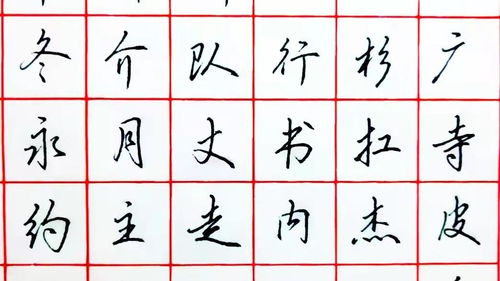 冬介队行杉广
永月丈书扛寺
约主走内杰皮